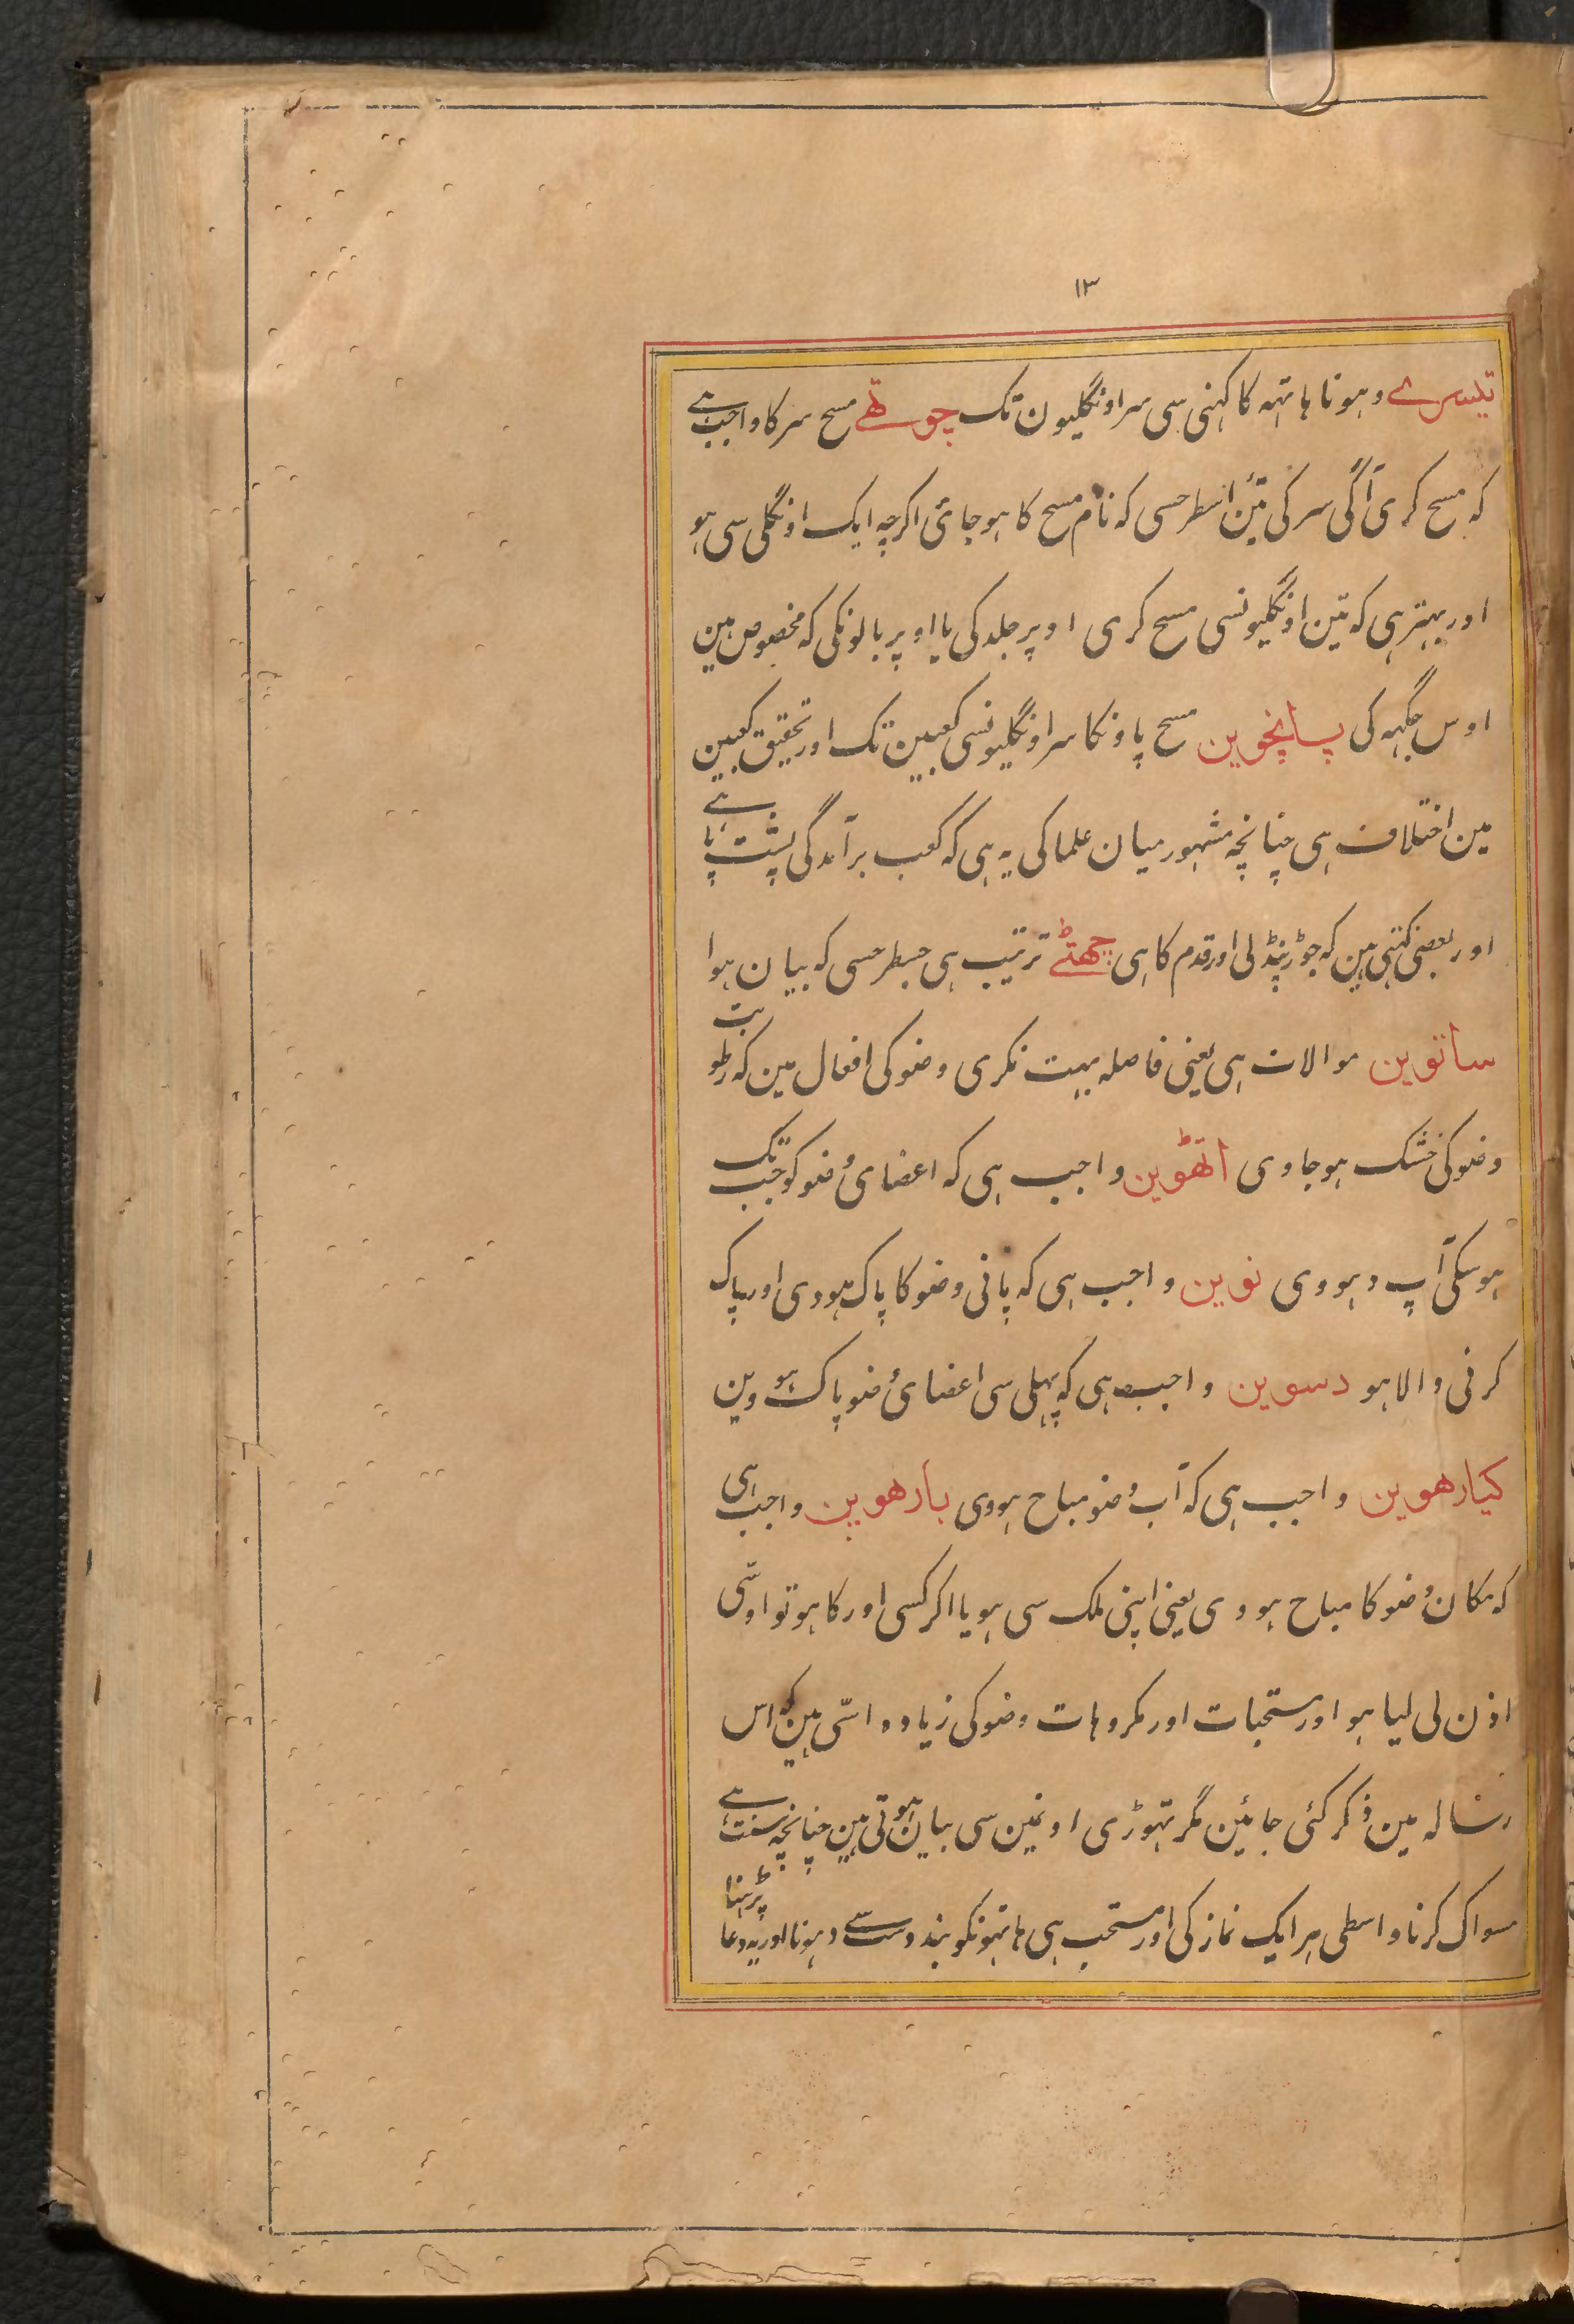 ۱۳
تیسرے دہونا ہاتہہ کا کہنی سی سر اونگلیون تک چوتھے مسح سر کا واجب ہے
کہ مسح کری آگی سر کی تئین اسطرحسی کہ نام مسح کا ہو جائ اکرچہ ایک اونگلی سی ہو
اور بہتر ہی کہ تین اونگلیونسی مسح کری اوپر جلد کی یا اوپر بالونکی کہ مخصوص ہین
اوس جگہہ کی پانچوین مسح پاونکا سر اونگلیونسی کعبین تک اور تحقیق کعبین
مین اختلاف ہی چنانچہ مشہور میان علما کی یہ ہی کہ کعب برآمدگی پشت پا ہے
اور بعضی کہتی ہین کہ جوڑ پنڈلی اور قدم کا ہی چھٹے ترتیب ہی جسطرحسی کہ بیان ہوا
ساتوین موالات ہی یعنی فاصلہ بہت نکری وضو کی افعال مین کہ رطوبت
وضو کی خشک ہو جاوی اتھوین واجب ہی کہ اعضائ وضو کو جب تک
ہو سکی آپ دہووی نوین واجب ہی کہ پانی وضو کا پاک ہووی اور پاک
کرنی والا ہو دسوین واجب ہی کہ پہلی سی اعضائ وضو پاک ہووین
کیارھوین واجب ہی کہ آب وضو مباح ہووی بارھوین واجب ہی
کہ مکان وضو کا مباح ہووی یعنی اپنی ملک سی ہو یا اکر کسی اور کا ہو تو اوسّی
اذن لی لیا ہو اور مستحبات اور مکروہات وضو کی زیادہ اسّی ہین کہ اس
رسالہ مین ذکر کئی جائین مگر تہوڑی اونمین سی بیان ہوتی ہین چنانچہ سنت ہے
مسواک کرنا واسطی ہر ایک نماز کی اور مستحب ہی ہاتہونکو بند دست سے دہونا اور یہ دعا پڑہنا